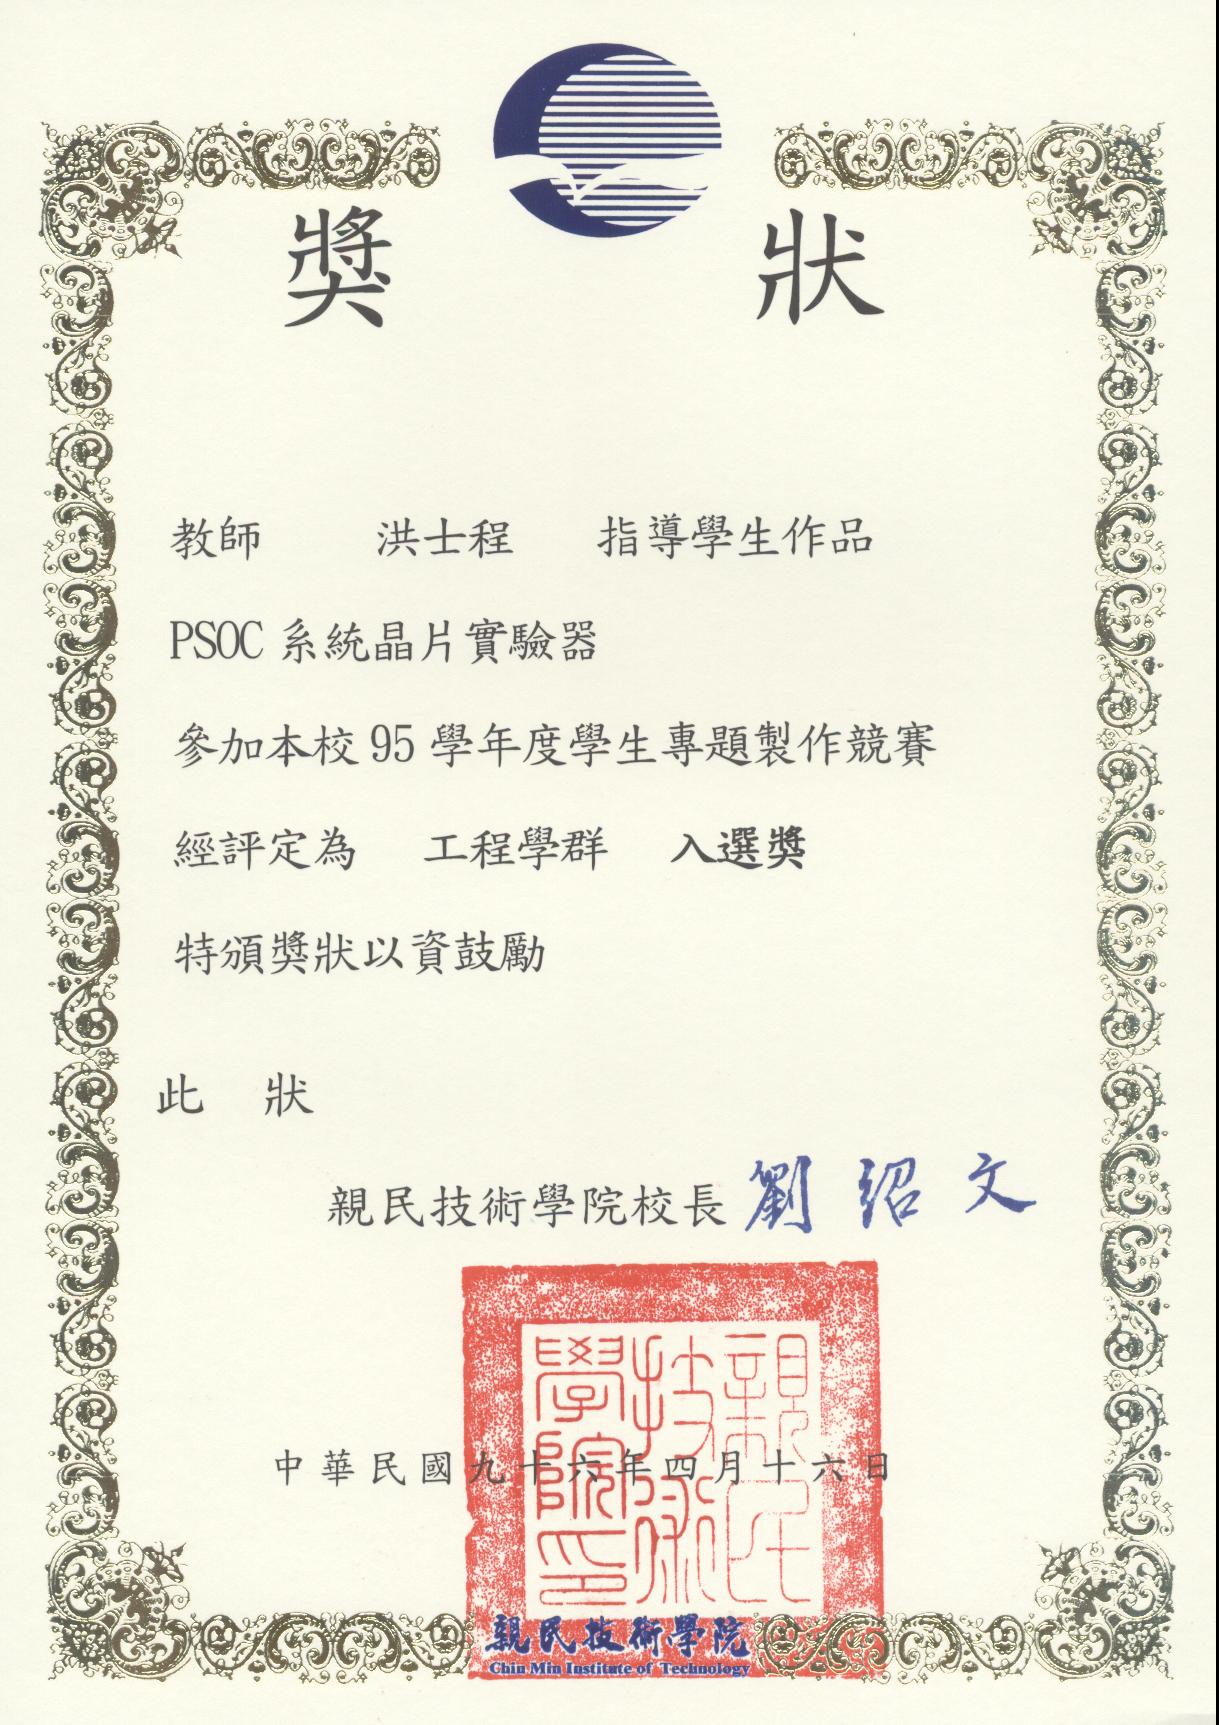 獎 狀
教師 洪士程 指導學生作品
PSOC 系統晶片實驗器
參加本校 95 學年度學生專題製作競賽
經評定為 工程學群 入選獎
特頒獎狀以資鼓勵
此 狀
親民技術學院校長 劉紹文
親民技術學院印
中華民國九十六年四月十六日
親民技術學院
Chin Min Institute of Technology